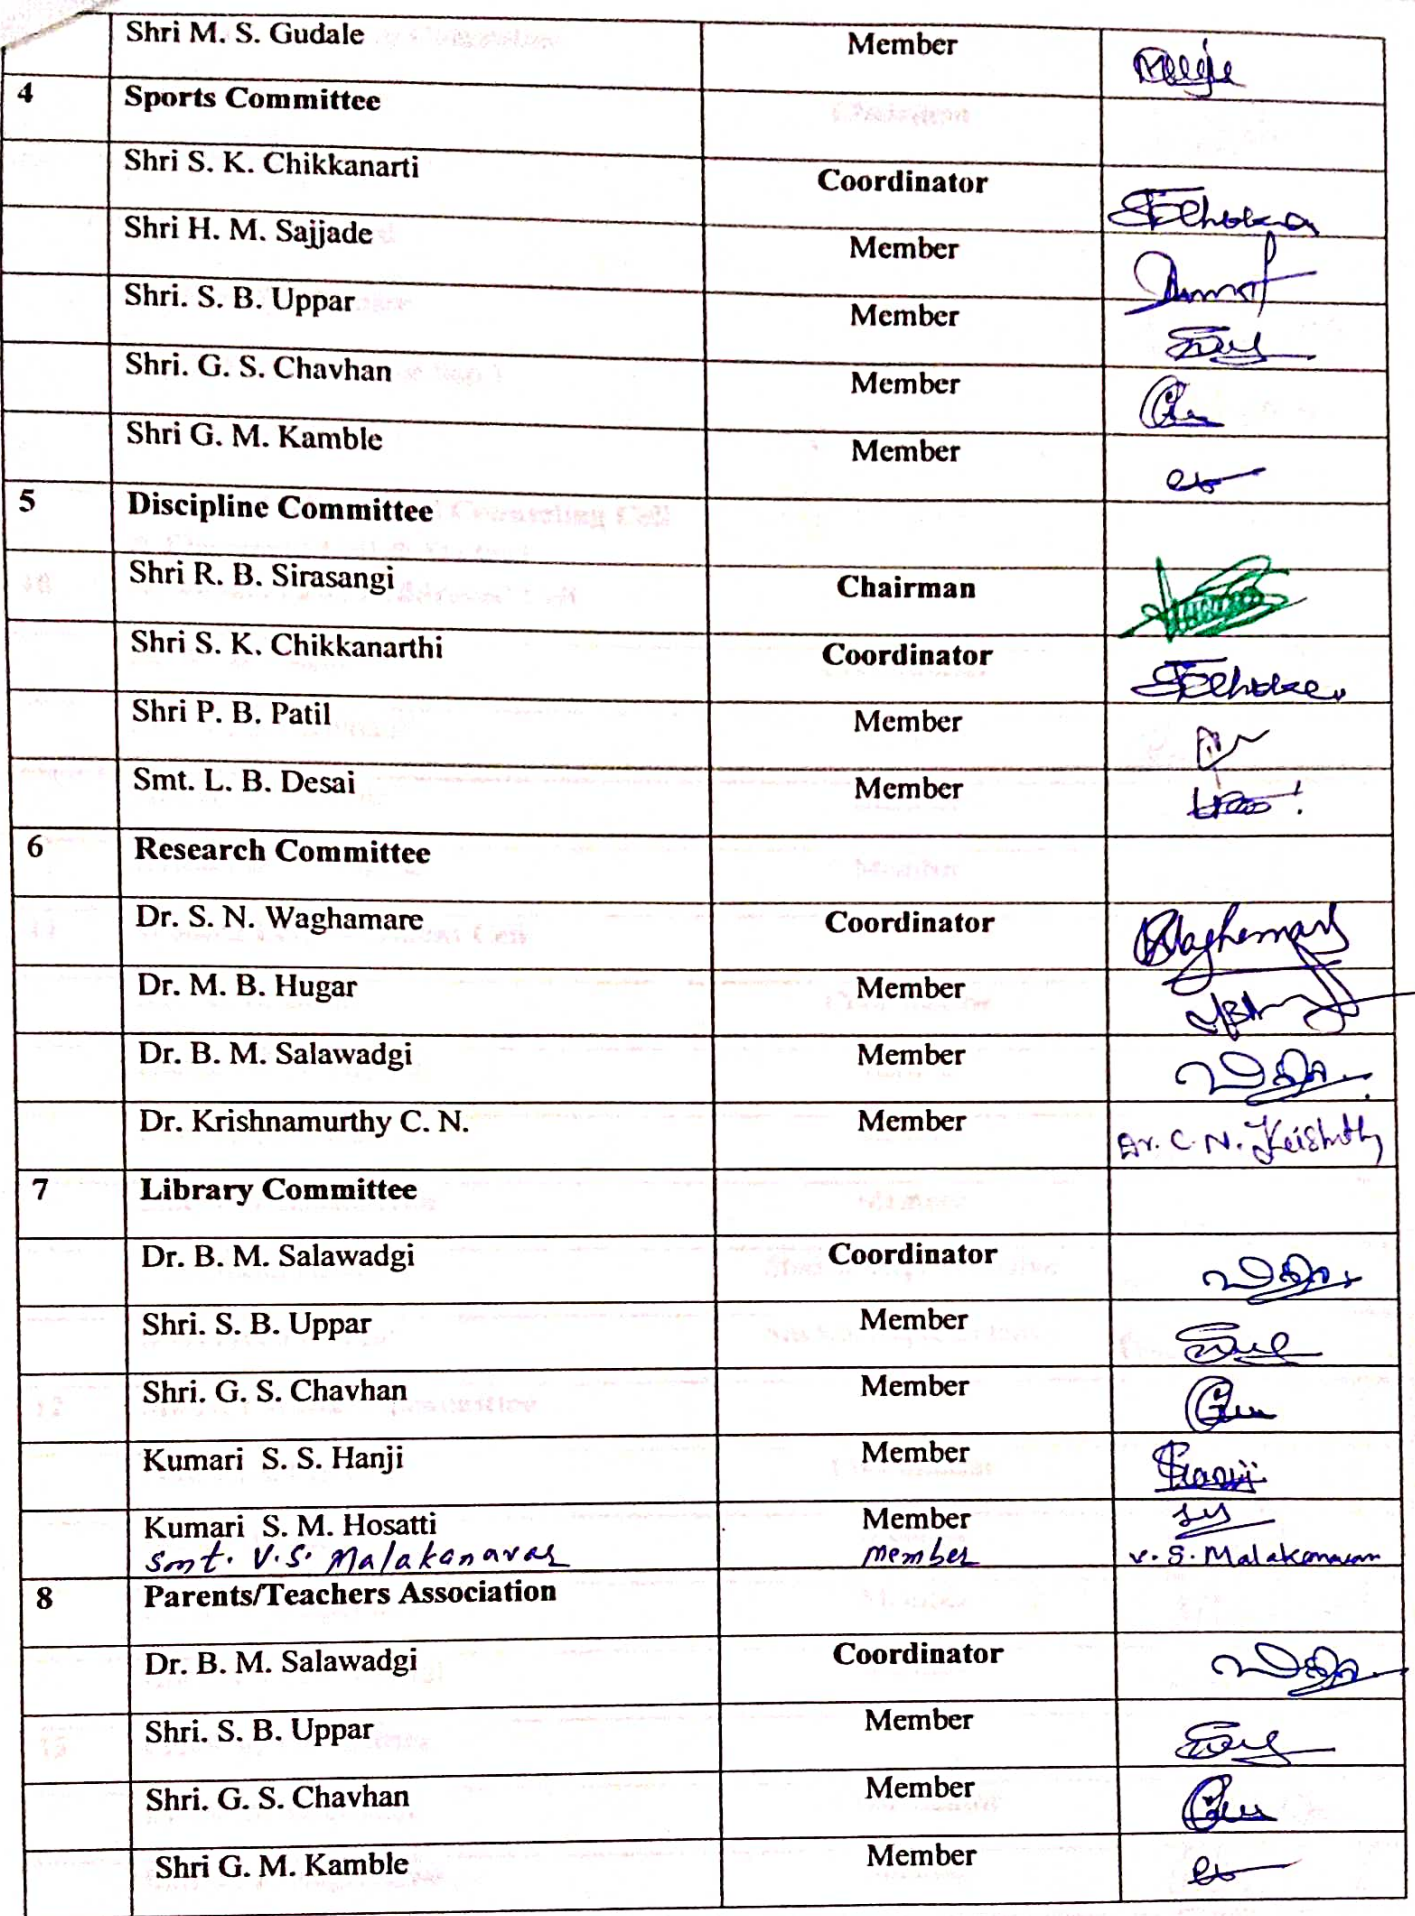 Shri M. S. Gudale Member
4 Sports Committee
Shri S. K. Chikkanarti Coordinator
Shri H. M. Sajjade Member
Shri. S. B. Uppar Member
Shri. G. S. Chavhan Member
Shri G. M. Kamble Member
5 Discipline Committee
Shri R. B. Sirasangi Chairman
Shri S. K. Chikkanarthi Coordinator
Shri P. B. Patil Member
Smt. L. B. Desai Member
6 Research Committee
Dr. S. N. Waghamare Coordinator
Dr. M. B. Hugar Member
Dr. B. M. Salawadgi Member
Dr. Krishnamurthy C. N. Member
7 Library Committee
Dr. B. M. Salawadgi Coordinator
Shri. S. B. Uppar Member
Shri. G. S. Chavhan Member
Kumari S. S. Hanji Member
Kumari S. M. Hosatti Member
Smt. V.S. Malakanavar member V. S. Malakanavar
8 Parents/Teachers Association
Dr. B. M. Salawadgi Coordinator
Shri. S. B. Uppar Member
Shri. G. S. Chavhan Member
Shri G. M. Kamble Member